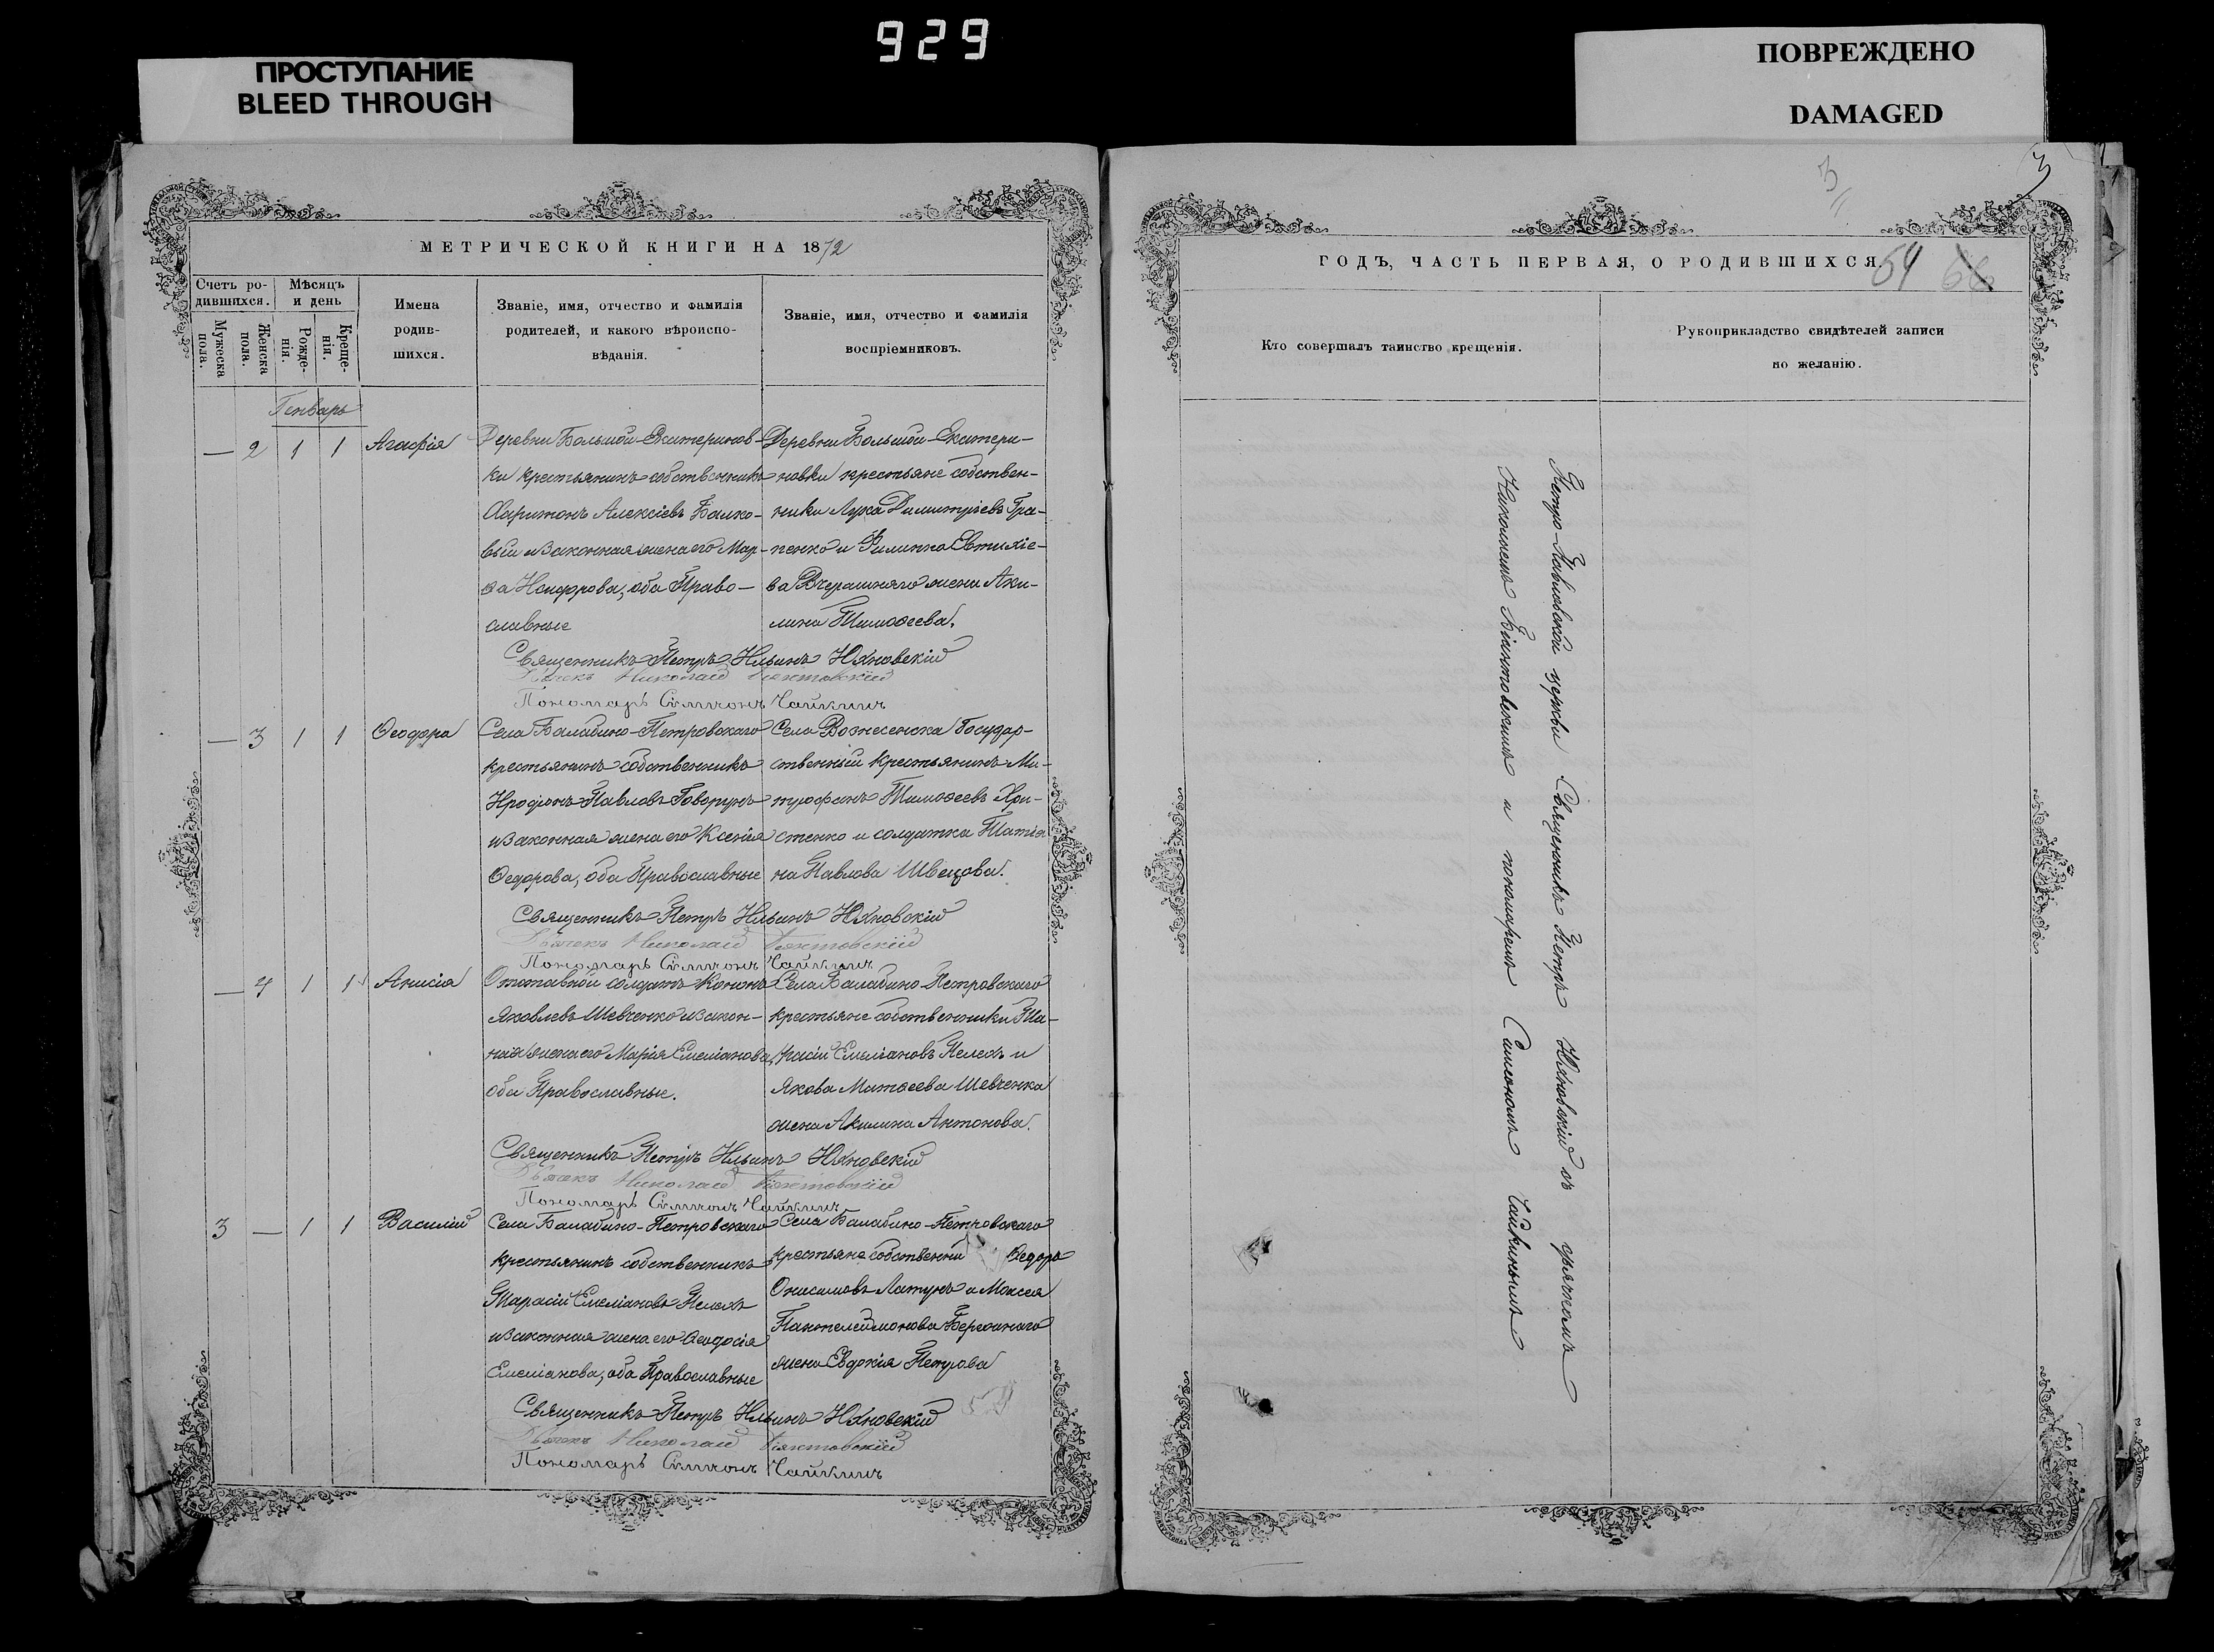 929
ПРОСТУПАНИЕ
BLEED THROUGH
ПОВРЕЖДЕНО
DAMAGED
3
3
МЕТРИЧЕСКОЙ КНИГИ НА 1872
Счетъ родившихся.
Мужеска пола.
Женска пола.
Мѣсяцъ и день
Рожденія.
Крещенія.
Имена
родив-
шихся.
Званіе, имя, отчество и фамилія
родителей, и какого вѣроиспо-
вѣданія.
Званіе, имя, отчество и фамилія
воспріемниковъ.
Генварь
— 2 1 1 Агафія
Деревни Большой-Екатеринов-
ки крестьянинъ собственникъ
Харитонъ Алексіевъ
и законная жена его Мар-
ѳа оба Право-
славные
Деревни Большой-Екатери-
новки крестьяне собствен-
ники Лука Димитріевъ Гра-
пенко и Евтихіе-
ва Вчерашняго жена Аки-
лина Тимоѳеева.
Священникъ Петръ Ильинъ Юхновскій
Дьячекъ Николай
Пономарь Симеонъ Чайкинъ
— 3 1 1 Ѳеодора
Села Балабино-Петровскаго
крестьянинъ собственникъ
Иродіонъ Павловъ Говорунъ
и законная жена его Ксенія
Ѳедорова, оба Православные
Села Вознесенска Государ-
ственный крестьянинъ Ми-
трофанъ Тимоѳеевъ Хри-
стенко и солдатка Татія-
на Павлова Швецова.
Священникъ Петръ Ильинъ Юхновскій
Дьячекъ Николай
Пономарь Симеонъ Чайкинъ
— 4 1 1 Анисія
Отставной солдатъ Кононъ
Яковлевъ Шевченко и закон-
ная жена его Марія Емеліанова,
оба Православные.
Села Балабино-Петровскаго
крестьяне собственники Та-
расій Емеліановъ Пелехъ и
Якова Матѳеева Шевченка
жена Акилина Антонова.
Священникъ Петръ Ильинъ Юхновскій
Дьячекъ Николай
Пономарь Симеонъ Чайкинъ
3 — 1 1 Василій
Села Балабино-Петровскаго
крестьянинъ собственникъ
Тарасій Емеліановъ Пелехъ
и законная жена его Ѳеодосія
Емеліанова, оба Православные
Села Балабино-Петровскаго
крестьяне собственни Ѳедоръ
Онисимовъ Латунъ и Моисея
Пантелеймонова Бережнаго
жена Евдокія Петрова
Священникъ Петръ Ильинъ Юхновскій
Дьячекъ Николай
Пономарь Симеонъ Чайкинъ
ГОДЪ, ЧАСТЬ ПЕРВАЯ, О РОДИВШИХСЯ.
54
Кто совершалъ таинство крещенія.
Рукоприкладство свидѣтелей записи
по желанію.
Петро-Павловской церкви Священникъ Петръ Юхновскій съ дьячкомъ
Николаемъ и пономаремъ Симеономъ Чайкинымъ